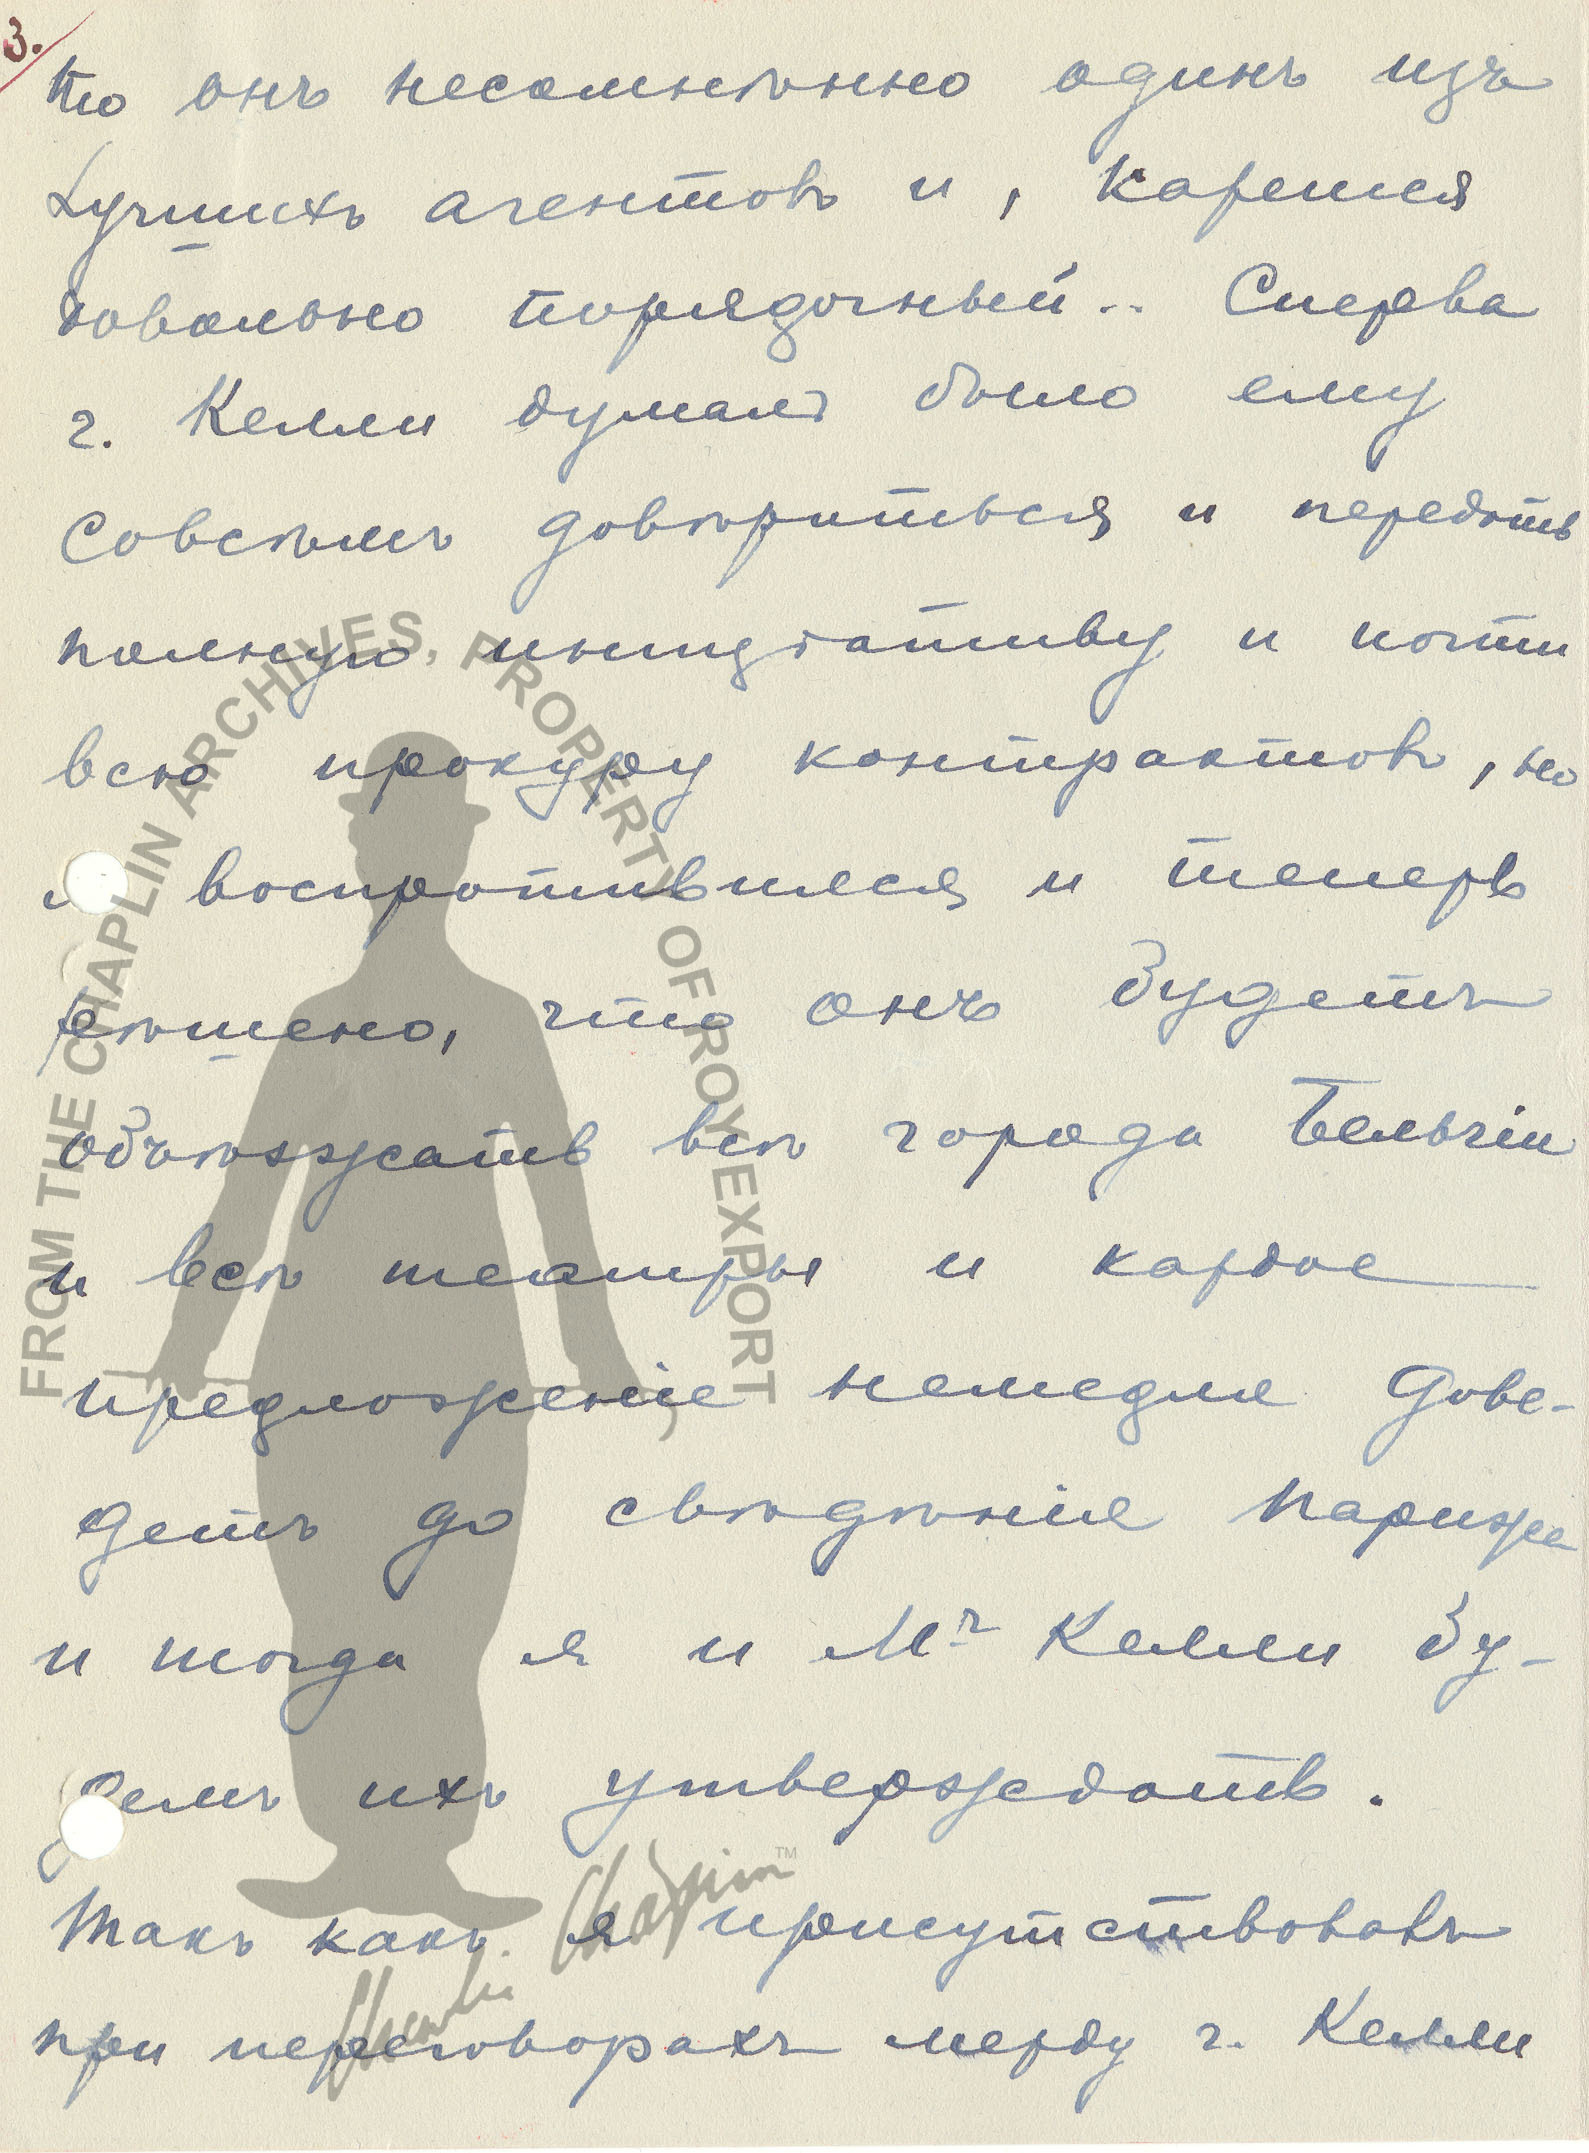 3.
то онъ несомнѣнно одинъ изъ
лучшихъ агентовъ и, кажется
довольно порядочный.. Сперва
г. Келли думалъ было ему
совсѣмъ довѣриться и передать
полную инициативу и почти
всю прокуру контрактовъ, но
я воспротивился и теперь
рѣшено, что онъ будетъ
объѣзжать всѣ города Бельгіи
и всѣ театры и каждое
предложеніе немедля дове-
детъ до свѣдѣнія Парижа
и тогда я и Мг Келли бу-
демъ ихъ утверждать.
Такъ какъ я присутствовалъ
при переговорахъ между г. Келли
FROM THE CHAPLIN ARCHIVES, PROPERTY OF ROY EXPORT
Charlie Chaplin TM